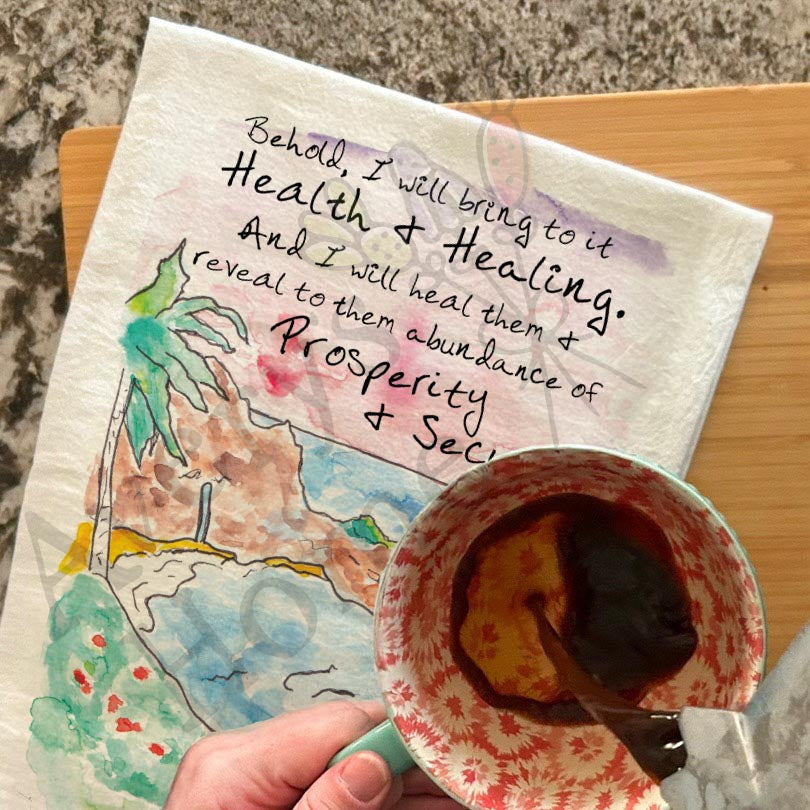 Behold, I will bring to it
Health & Healing.
And I will heal them &
reveal to them abundance of
Prosperity
&